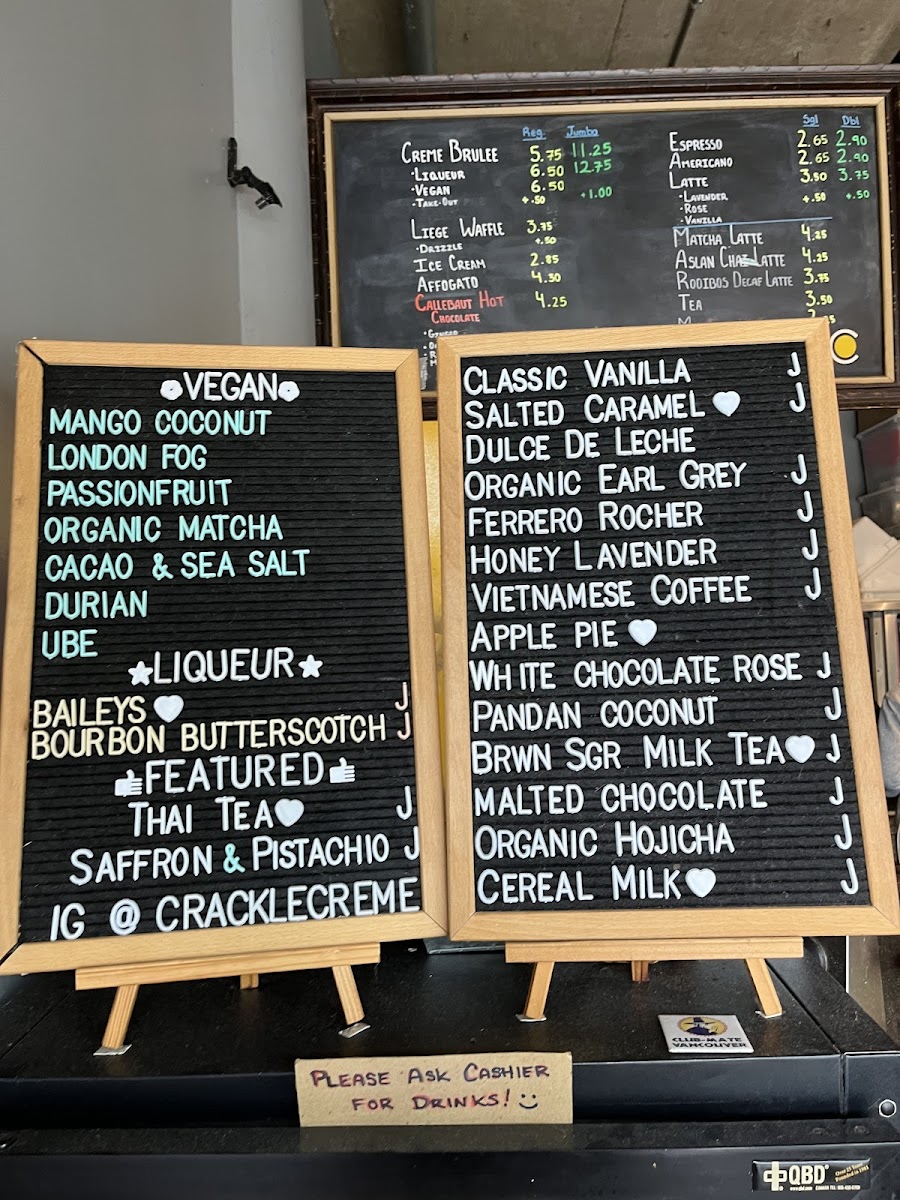 Reg. Jumbo
CREME BRULEE 5.75 11.25
·LIQUEUR 6.50 12.75
·VEGAN 6.50
·TAKE-OUT +.50 +1.00
LIEGE WAFFLE 3.75
·DRIZZLE +.50
ICE CREAM 2.85
AFFOGATO 4.50
CALLEBAUT HOT 4.25
CHOCOLATE
Sgl Dbl
ESPRESSO 2.65 2.90
AMERICANO 2.65 2.90
LATTE 3.50 3.75
·LAVENDER +.50 +.50
·ROSE
·VANILLA
MATCHA LATTE 4.25
ASLAN CHAI LATTE 4.25
ROOIBOS DECAF LATTE 3.75
TEA 3.50
VEGAN
MANGO COCONUT
LONDON FOG
PASSIONFRUIT
ORGANIC MATCHA
CACAO & SEA SALT
DURIAN
UBE
LIQUEUR
BAILEYS J
BOURBON BUTTERSCOTCH J
FEATURED
THAI TEA J
SAFFRON & PISTACHIO J
IG @ CRACKLECREME
CLASSIC VANILLA J
SALTED CARAMEL J
DULCE DE LECHE
ORGANIC EARL GREY J
FERRERO ROCHER J
HONEY LAVENDER J
VIETNAMESE COFFEE J
APPLE PIE
WHITE CHOCOLATE ROSE J
PANDAN COCONUT J
BRWN SGR MILK TEA J
MALTED CHOCOLATE J
ORGANIC HOJICHA J
CEREAL MILK J
CLUB-MATE
VANCOUVER
PLEASE ASK CASHIER
FOR DRINKS!
QBD